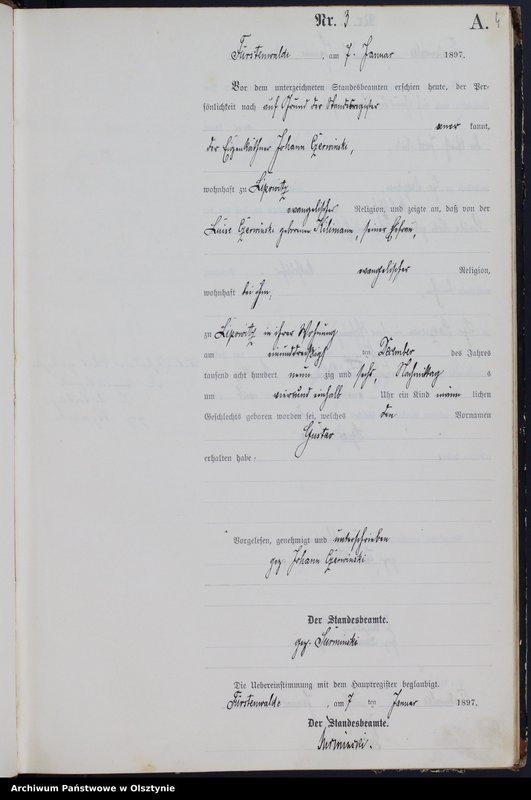 Nr. 3
A. 4
Fürstenwalde, am 7. Januar 1897.
Vor dem unterzeichneten Standesbeamten erschien heute, der Per-
sönlichkeit nach auf Grund der Standesregister
aner kannt,
der Eigenkäthner Johann Czerwinski,
wohnhaft zu Lipowitz
evangelischer Religion, und zeigte an, daß von der
Luise Czerwinski geborenen Kilimann, seiner Ehefrau,
evangelischer Religion,
wohnhaft bei ihm,
zu Lipowitz in ihrer Wohnung
am ten Dezember des Jahres
tausend acht hundert neun zig und sechs, Nachmittag s
um vierund einhalb Uhr ein Kind männ lichen
Geschlechts geboren worden sei, welches den Vornamen
Gustav
erhalten habe.
Vorgelesen, genehmigt und unterschrieben
gez. Johann Czerwinski
Der Standesbeamte.
gez. Surminski
Die Uebereinstimmung mit dem Hauptregister beglaubigt.
Fürstenwalde, am 7 ten Januar 1897.
Der Standesbeamte.
Surminski.
Archiwum Państwowe w Olsztynie